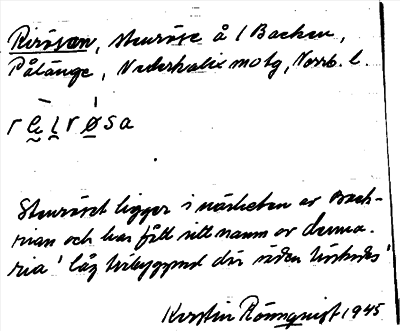 Rirösen, stenröse å l Backen,
Pålänge, Nederkalix motg, Norrb. l.
re̖lrösa
Stenröset ligger i närheten av Back-
rian och har fått sitt namn av denna.
ria' låg där
Kerstin Rönnquist 1945